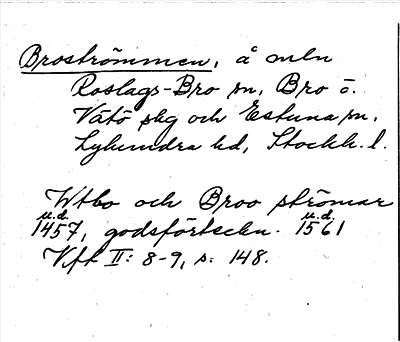 Broströmmen, å mln
Roslags-Bro sn, Bro o.
Vätö skg och Estuna sn,
Lyhundra hd, Stockh. l.
Wtbo och Broo strömar
u.d. u.d.
1457, godsförteckn. 1561
Vft II: 8-9, s. 148.